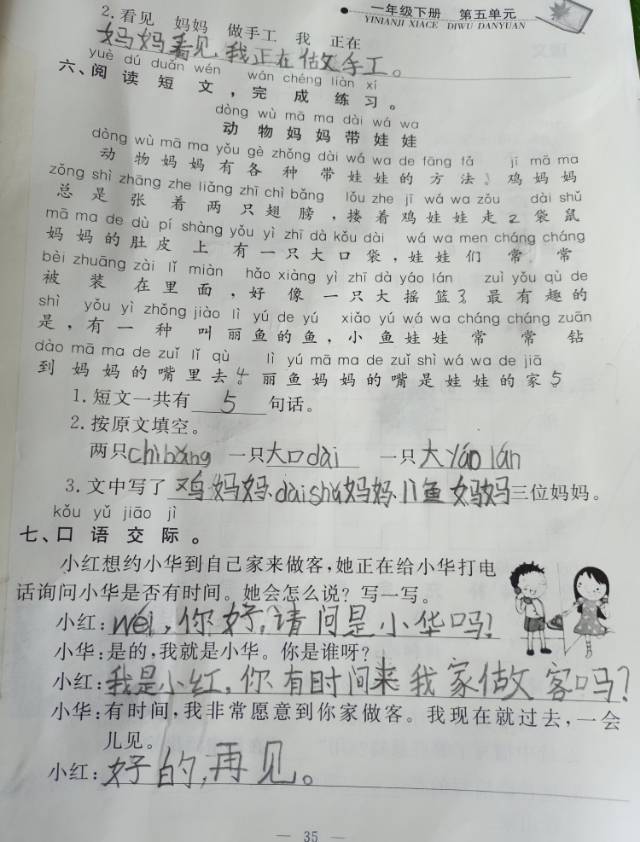 一年级下册 第五单元
YINIANJI XIACE DIWU DANYUAN
2. 看见 妈妈 做手工 我 正在
妈妈看见我正在做手工。
yuè dú duǎn wén wán chéng liàn xí
六、阅读短文，完成练习。
dòng wù mā ma dài wá wa
动物妈妈带娃娃
dòng wù mā ma yǒu gè zhǒng dài wá wa de fāng fǎ jī mā ma
动物妈妈有各种带娃娃的方法。鸡妈妈
zǒng shì zhāng zhe liǎng zhī chì bǎng lǒu zhe jī wá wa zǒu dài shǔ
总是张着两只翅膀，搂着鸡娃娃走2袋鼠
mā ma de dù pí shàng yǒu yì zhī dà kǒu dài wá wa men cháng cháng
妈妈的肚皮上有一只大口袋，娃娃们常常
bèi zhuāng zài lǐ miàn hǎo xiàng yì zhī dà yáo lán zuì yǒu qù de
被装在里面，好像一只大摇篮3最有趣的
shì yǒu yì zhǒng jiào lì yú de yú xiǎo yú wá wa cháng cháng zuān
是，有一种叫丽鱼的鱼，小鱼娃娃常常钻
dào mā ma de zuǐ lǐ qù lì yú mā ma de zuǐ shì wá wa de jiā
到妈妈的嘴里去4丽鱼妈妈的嘴是娃娃的家5
1. 短文一共有 5 句话。
2. 按原文填空。
两只chìbǎng 一只大口dài 一只大yáo lán
3. 文中写了鸡妈妈、daishǔ妈妈、鱼妈妈三位妈妈。
kǒu yǔ jiāo jì
七、口语交际。
小红想约小华到自己家来做客，她正在给小华打电
话询问小华是否有时间。她会怎么说？写一写。
小红：wéi，你好，请问是小华吗？
小华：是的，我就是小华。你是谁呀？
小红：我是小红，你有时间来我家做客吗？
小华：有时间，我非常愿意到你家做客。我现在就过去，一会
儿见。
小红：好的，再见。
— 35 —